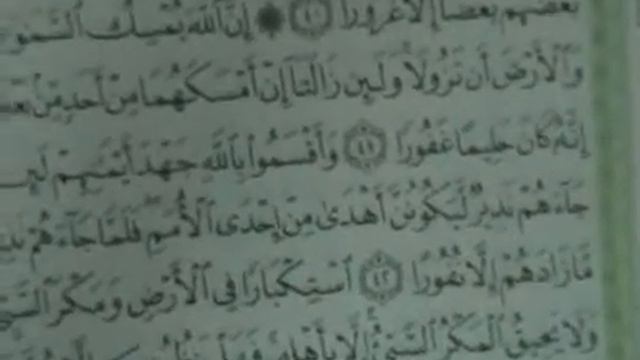 بَعْضُهُم بَعْضًا إِلَّا غُرُورًا ٤٠ ۞ إِنَّ ٱللَّهَ يُمْسِكُ ٱلسَّمَٰوَ
وَٱلْأَرْضَ أَن تَزُولَا وَلَئِن زَالَتَآ إِنْ أَمْسَكَهُمَا مِنْ أَحَدٍ مِّنۢ بَعْ
إِنَّهُۥ كَانَ حَلِيمًا غَفُورًا ٤١ وَأَقْسَمُوا۟ بِٱللَّهِ جَهْدَ أَيْمَٰنِهِمْ لَئِ
جَآءَهُمْ نَذِيرٌ لَّيَكُونُنَّ أَهْدَىٰ مِنْ إِحْدَى ٱلْأُمَمِ فَلَمَّا جَآءَهُمْ نَذِ
مَّا زَادَهُمْ إِلَّا نُفُورًا ٤٢ ٱسْتِكْبَارًا فِى ٱلْأَرْضِ وَمَكْرَ ٱلسَّيِّ
وَلَا يَحِيقُ ٱلْمَكْرُ ٱلسَّيِّئُ إِلَّا بِأَهْلِهِۦ فَهَلْ